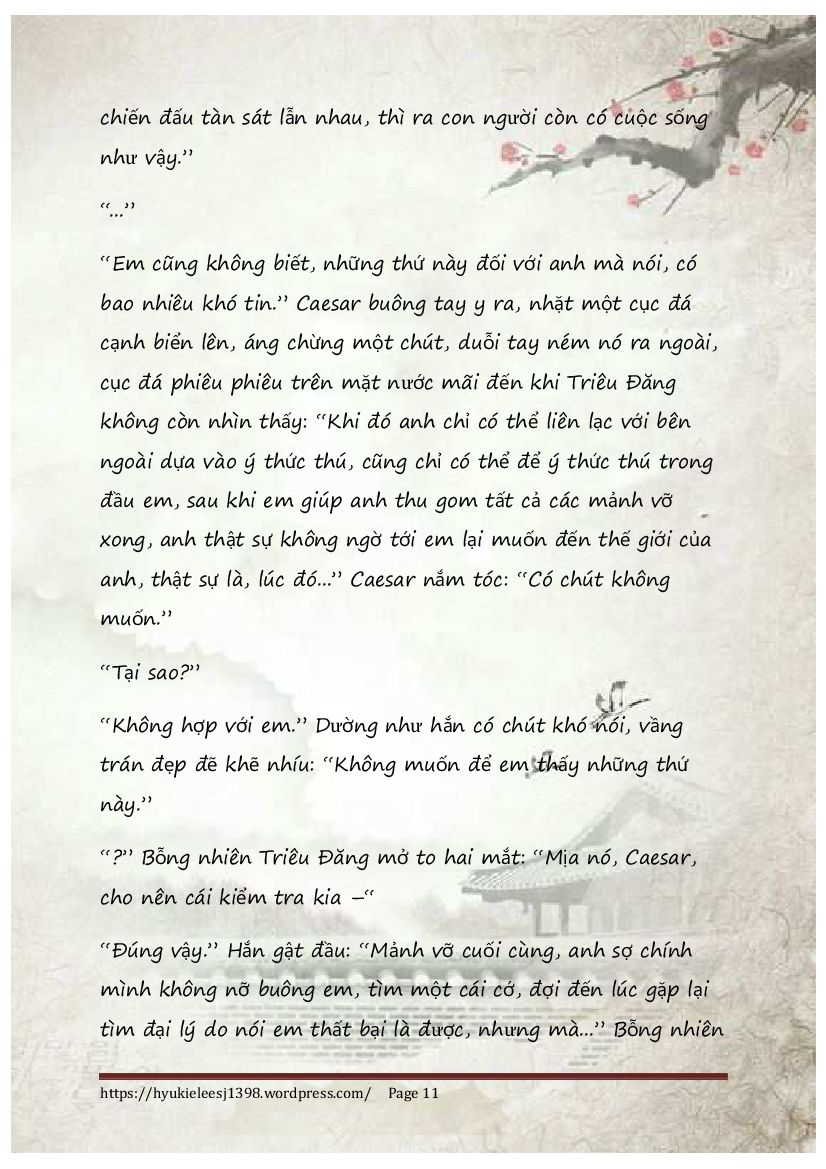 chiến đấu tàn sát lẫn nhau, thì ra con người còn có cuộc sống
như vậy.”
“...”
“Em cũng không biết, những thứ này đối với anh mà nói, có
bao nhiêu khó tin.” Caesar buông tay y ra, nhặt một cục đá
cạnh biển lên, áng chừng một chút, duỗi tay ném nó ra ngoài,
cục đá phiêu phiêu trên mặt nước mãi đến khi Triêu Đăng
không còn nhìn thấy: “Khi đó anh chỉ có thể liên lạc với bên
ngoài dựa vào ý thức thú, cũng chỉ có thể để ý thức thú trong
đầu em, sau khi em giúp anh thu gom tất cả các mảnh vỡ
xong, anh thật sự không ngờ tới em lại muốn đến thế giới của
anh, thật sự là, lúc đó...” Caesar nắm tóc: “Có chút không
muốn.”
“Tại sao?”
“Không hợp với em.” Dường như hắn có chút khó nói, vầng
trán đẹp đẽ khẽ nhíu: “Không muốn để em thấy những thứ
này.”
“?” Bỗng nhiên Triêu Đăng mở to hai mắt: “Mịa nó, Caesar,
cho nên cái kiểm tra kia –“
“Đúng vậy.” Hắn gật đầu: “Mảnh vỡ cuối cùng, anh sợ chính
mình không nỡ buông em, tìm một cái cớ, đợi đến lúc gặp lại
tìm đại lý do nói em thất bại là được, nhưng mà...” Bỗng nhiên
https://hyukieleesj1398.wordpress.com/ Page 11